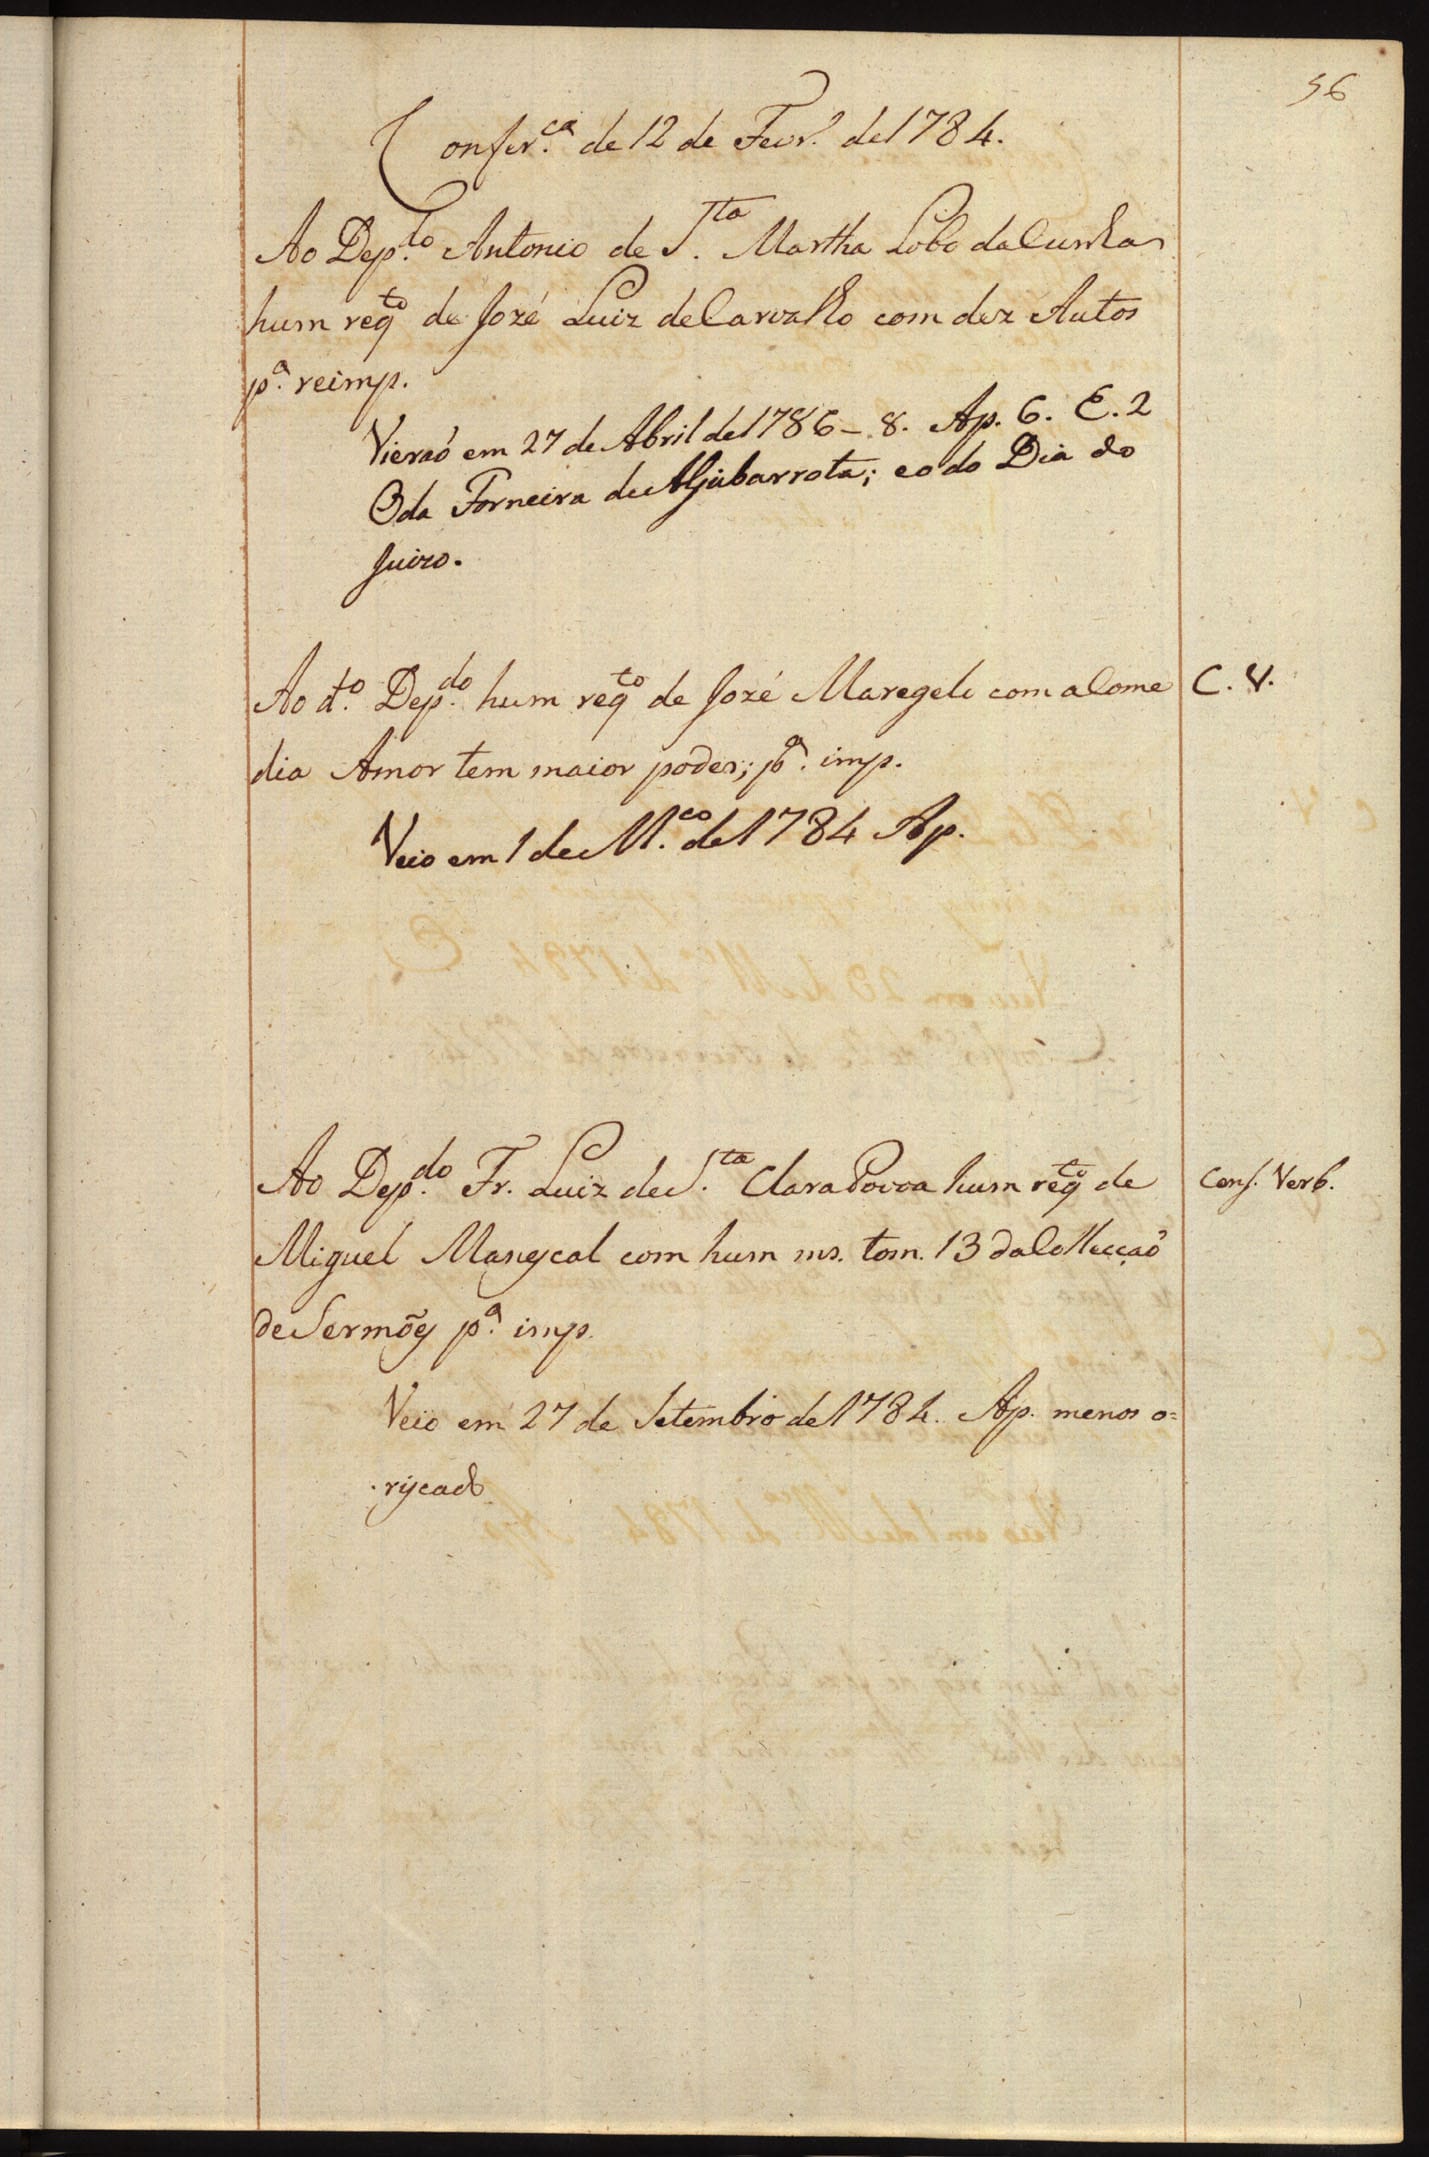 56
Confer.ca de 12 de Fevr.o de 1784.
Ao Dep.do Antonio de S.ta Martha Lobo da Cunha
hum reqto de Jozé Luiz de Carvalho com dez Autos
p.a reimp.
Vieraõ em 27 de Abril de 1786 – 8. Ap. 6. E. 2
O da Forneira de Aljubarrota; e o do Dia do
Juizo.
Ao d.to Dep.do hum reqto de Jozé Maregelo com a Come
C. V.
dia Amor tem maior poder; p.a imp.
Veio em 1 de M.ço de 1784 Ap.
Ao Dep.do Fr. Luiz de S.ta Clara Povoa hum reqto de
Conf. Verb.
Miguel Manescal com hum ms. tom. 13 da Collecçaõ
de Sermões p.a imp.
Veio em 27 de Setembro de 1784. Ap. menos o=
riscado